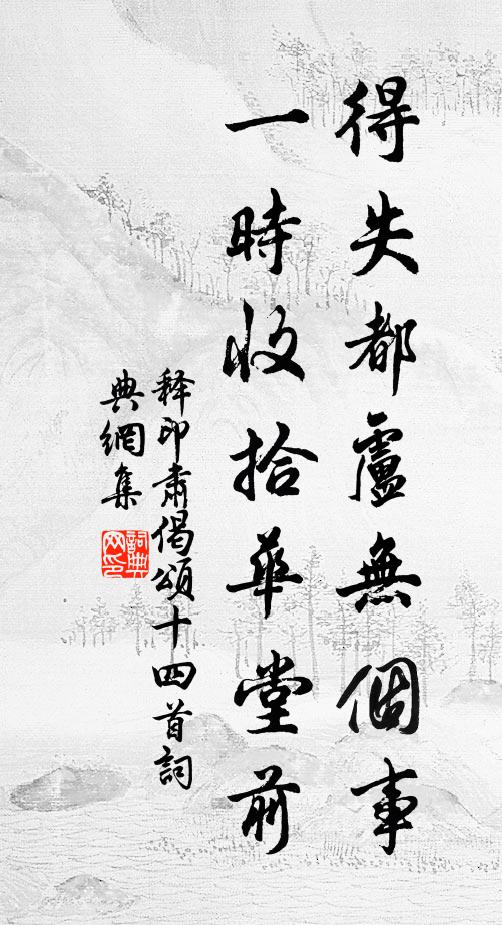 得失都盧無個事
一時收拾華堂前
释印肅偈頌十四首詞
典網集
詞典
网印